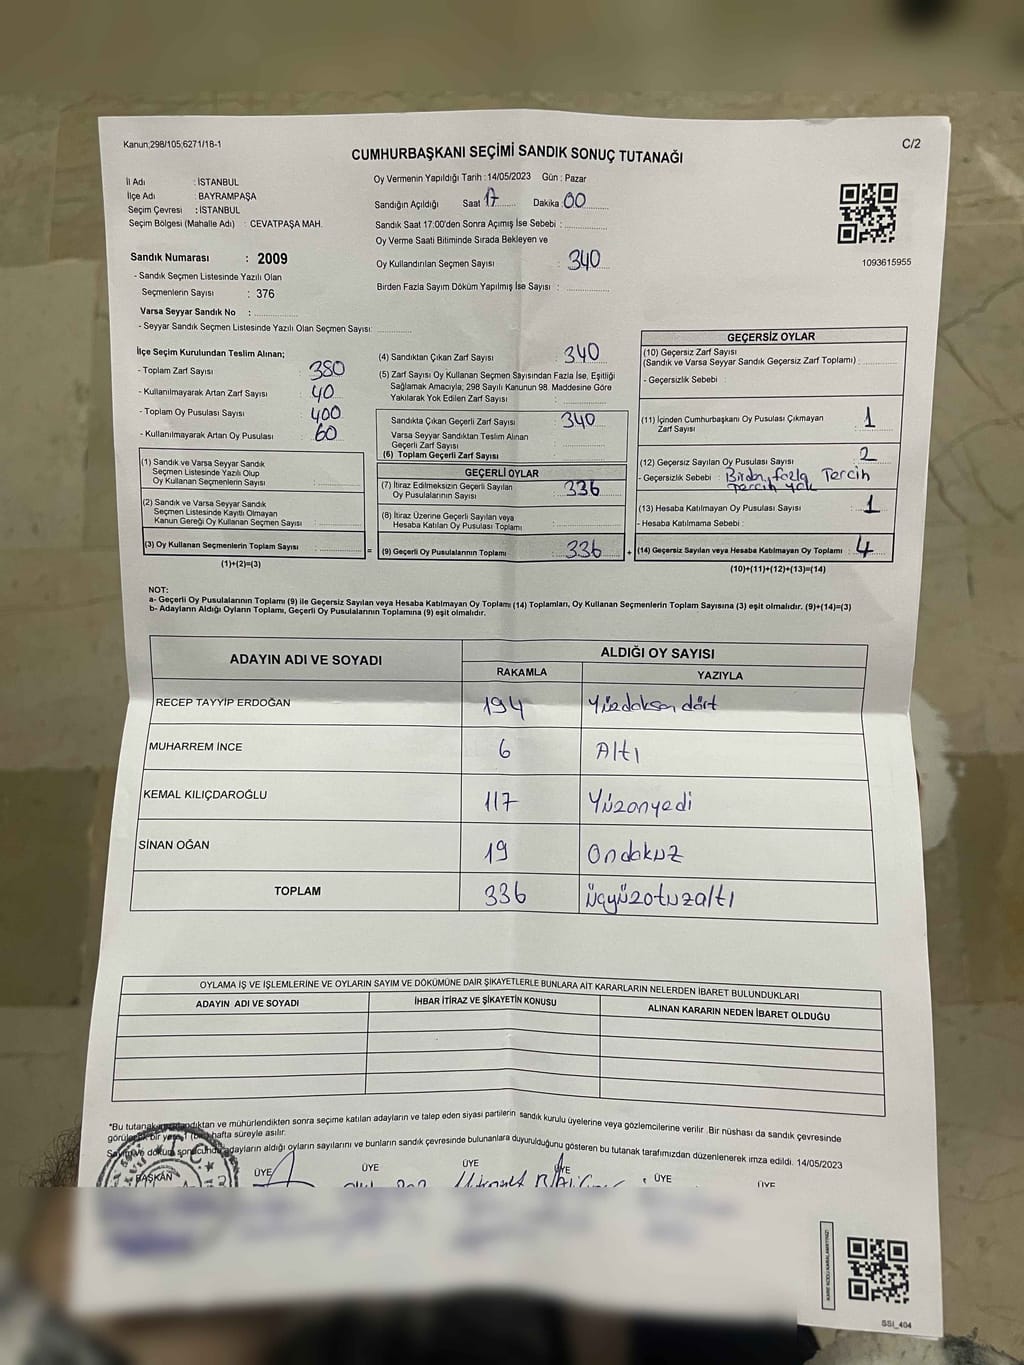 Kanun;298/105;6271/18-1
C/2
CUMHURBAŞKANI SEÇİMİ SANDIK SONUÇ TUTANAĞI
İl Adı : İSTANBUL
İlçe Adı : BAYRAMPAŞA
Seçim Çevresi : İSTANBUL
Seçim Bölgesi (Mahalle Adı) : CEVATPAŞA MAH.
Sandık Numarası : 2009
- Sandık Seçmen Listesinde Yazılı Olan
Seçmenlerin Sayısı : 376
Varsa Seyyar Sandık No :
- Seyyar Sandık Seçmen Listesinde Yazılı Olan Seçmen Sayısı:
Oy Vermenin Yapıldığı Tarih : 14/05/2023 Gün : Pazar
Sandığın Açıldığı Saat 17 Dakika 00
Sandık Saat 17:00'den Sonra Açımış İse Sebebi :
Oy Verme Saati Bitiminde Sırada Bekleyen ve
Oy Kullandırılan Seçmen Sayısı : 340
Birden Fazla Sayım Döküm Yapılmış İse Sayısı :
1093615955
İlçe Seçim Kurulundan Teslim Alınan;
- Toplam Zarf Sayısı : 380
- Kullanılmayarak Artan Zarf Sayısı : 40
- Toplam Oy Pusulası Sayısı : 400
- Kullanılmayarak Artan Oy Pusulası : 60
(1) Sandık ve Varsa Seyyar Sandık
Seçmen Listesinde Yazılı Olup
Oy Kullanan Seçmenlerin Sayısı :
(2) Sandık ve Varsa Seyyar Sandık
Seçmen Listesinde Kayıtlı Olmayan
Kanun Gereği Oy Kullanan Seçmen Sayısı :
(3) Oy Kullanan Seçmenlerin Toplam Sayısı :
(1)+(2)=(3)
(4) Sandıktan Çıkan Zarf Sayısı : 340
(5) Zarf Sayısı Oy Kullanan Seçmen Sayısından Fazla İse, Eşitliği
Sağlamak Amacıyla; 298 Sayılı Kanunun 98. Maddesine Göre
Yakılarak Yok Edilen Zarf Sayısı :
Sandıkta Çıkan Geçerli Zarf Sayısı : 340
Varsa Seyyar Sandıktan Teslim Alınan
Geçerli Zarf Sayısı
(6) Toplam Geçerli Zarf Sayısı
GEÇERLİ OYLAR
(7) İtiraz Edilmeksizin Geçerli Sayılan
Oy Pusulalarının Sayısı : 336
(8) İtiraz Üzerine Geçerli Sayılan veya
Hesaba Katılan Oy Pusulası Toplamı :
= (9) Geçerli Oy Pusulalarının Toplamı : 336 +
GEÇERSİZ OYLAR
(10) Geçersiz Zarf Sayısı
(Sandık ve Varsa Seyyar Sandık Geçersiz Zarf Toplamı) :
- Geçersizlik Sebebi :
(11) İçinden Cumhurbaşkanı Oy Pusulası Çıkmayan
Zarf Sayısı : 1
(12) Geçersiz Sayılan Oy Pusulası Sayısı : 2
- Geçersizlik Sebebi : Birden fazla Tercih
Tercih yok
(13) Hesaba Katılmayan Oy Pusulası Sayısı : 1
- Hesaba Katılmama Sebebi :
(14) Geçersiz Sayılan veya Hesaba Katılmayan Oy Toplamı : 4
(10)+(11)+(12)+(13)=(14)
NOT:
a- Geçerli Oy Pusulalarının Toplamı (9) ile Geçersiz Sayılan veya Hesaba Katılmayan Oy Toplamı (14) Toplamları, Oy Kullanan Seçmenlerin Toplam Sayısına (3) eşit olmalıdır. (9)+(14)=(3)
b- Adayların Aldığı Oyların Toplamı, Geçerli Oy Pusulalarının Toplamına (9) eşit olmalıdır.
ADAYIN ADI VE SOYADI ALDIĞI OY SAYISI
RAKAMLA YAZIYLA
RECEP TAYYİP ERDOĞAN 194 Yüzdoksan dört
MUHARREM İNCE 6 Altı
KEMAL KILIÇDAROĞLU 117 Yüzonyedi
SİNAN OĞAN 19 Ondokuz
TOPLAM 336 üçyüzotuzaltı
OYLAMA İŞ VE İŞLEMLERİNE VE OYLARIN SAYIM VE DÖKÜMÜNE DAİR ŞİKAYETLERLE BUNLARA AİT KARARLARIN NELERDEN İBARET BULUNDUKLARI
ADAYIN ADI VE SOYADI İHBAR İTİRAZ VE ŞİKAYETİN KONUSU ALINAN KARARIN NEDEN İBARET OLDUĞU
*Bu tutanak ve mühürlendikten sonra seçime katılan adayların ve talep eden siyasi partilerin sandık kurulu üyelerine veya gözlemcilerine verilir .Bir nüshası da sandık çevresinde
bir yere 1 hafta süreyle asılır.
Sayım ve döküm sonucunda adayların aldığı oyların sayılarını ve bunların sandık çevresinde bulunanlara duyurulduğunu gösteren bu tutanak tarafımızdan düzenlenerek imza edildi. 14/05/2023
BAŞKAN ÜYE ÜYE ÜYE ÜYE ÜYE ÜYE
T.C.
SSI_404